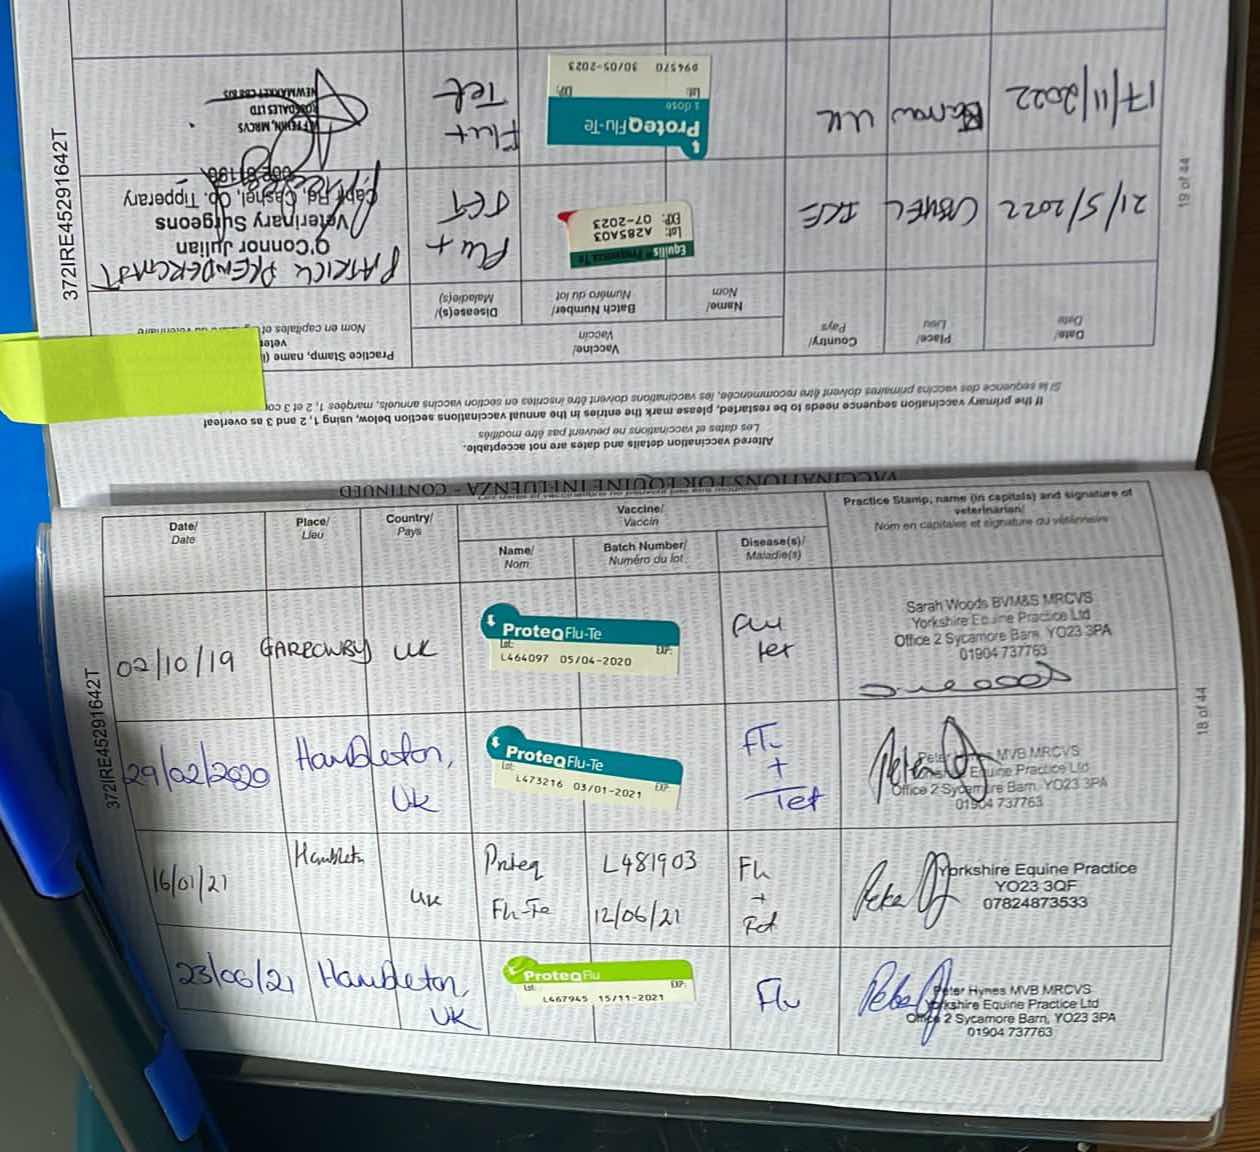 VACCINATIONS FOR EQUINE INFLUENZA - CONTINUED
Date/
Date
Place/
Lieu
Country/
Pays
Vaccine/
Vaccin
Name/
Nom
Batch Number/
Numéro du lot
Disease(s)/
Maladie(s)
Practice Stamp, name (in capitals) and signature of
veterinarian/
Nom en capitales et signature du vétérinaire
02/10/19
GARROWBY
UK
ProteqFlu-Te
Lot:
EXP:
L464097 05/04-2020
Flu
Tet
Sarah Woods BVM&S MRCVS
Yorkshire Equine Practice Ltd
Office 2 Sycamore Barn, YO23 3PA
01904 737763
29/02/2020
Hambleton,
UK
ProteqFlu-Te
Lot:
EXP:
L473216 03/01-2021
Flu
+
Tet
Peter Hynes MVB MRCVS
Yorkshire Equine Practice Ltd
Office 2 Sycamore Barn, YO23 3PA
01904 737763
16/01/21
Hambleton
UK
Proteq
Flu-Te
L481903
12/06/21
Flu
+
Tet
Yorkshire Equine Practice
YO23 3QF
07824873533
23/06/21
Hambleton,
UK
ProteqFlu
Lot:
EXP:
L467945 15/11-2021
Flu
Peter Hynes MVB MRCVS
Yorkshire Equine Practice Ltd
Office 2 Sycamore Barn, YO23 3PA
01904 737763
372IRE45291642T
18 of 44
Altered vaccination details and dates are not acceptable.
Les dates et vaccinations ne peuvent pas être modifiés
If the primary vaccination sequence needs to be restarted, please mark the entries in the annual vaccinations section below, using 1, 2 and 3 as overleaf
Si la sequence des vaccins primaires doivent être recommencée, les vaccinations doivent être inscrites en section vaccins annuels, marquées 1, 2 et 3
Date/
Date
Place/
Lieu
Country/
Pays
Vaccine/
Vaccin
Name/
Nom
Batch Number/
Numéro du lot
Disease(s)/
Maladie(s)
Practice Stamp, name
Nom en capitales et
21/5/2022
CASHEL
IRE
Equilis Prequenza Te
Lot: A285A03
EXP: 07-2023
Flu +
TET
PATRICK PRENDERGAST
O'Connor Julian
Veterinary Surgeons
Rd, Cashel, Co. Tipperary
17/11/2022
UK
ProteqFlu-Te
1 dose
Lot:
EXP:
D94570 30/05-2023
Flu+
Tet
MRCVS
ROSSDALES LTD
NEWMARKET CB8 8JS
372IRE45291642T
19 of 44